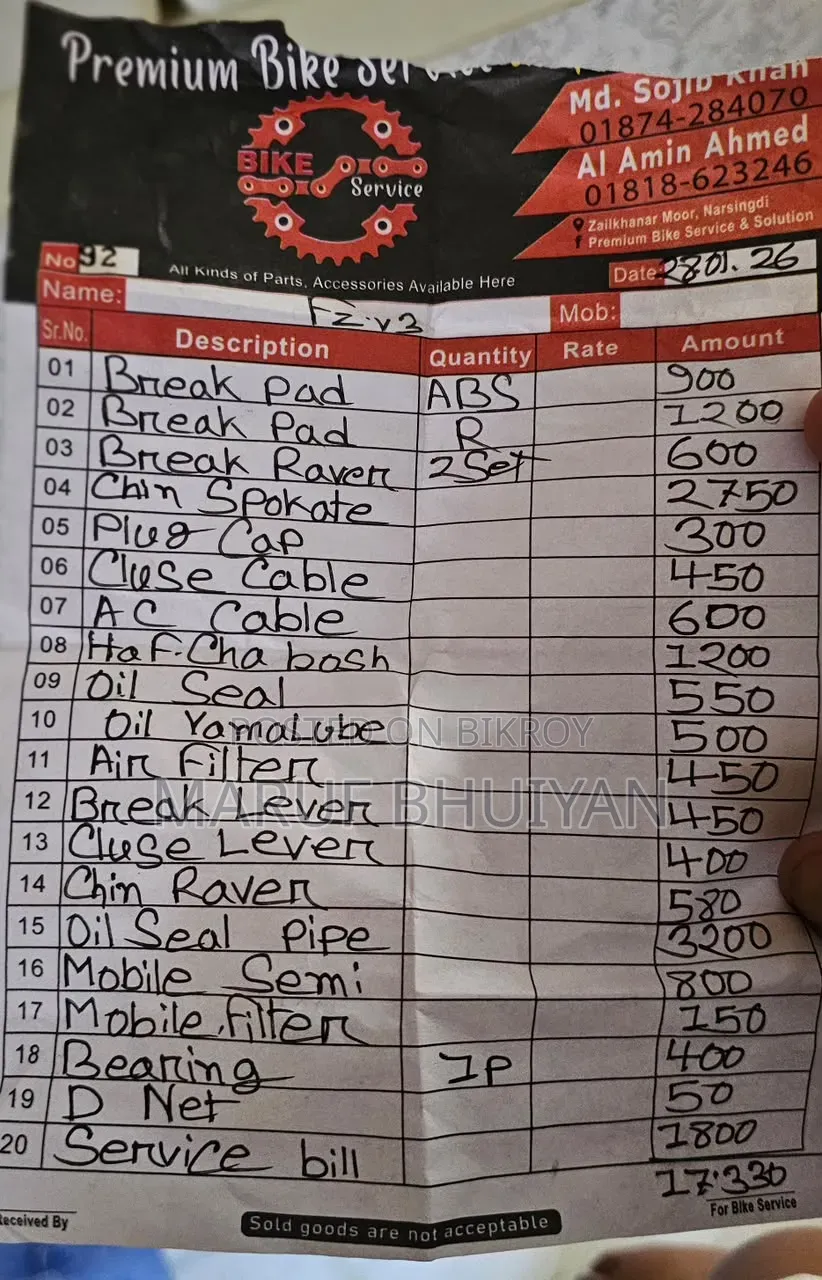 Premium Bike Service
Md. Sojib Khan
01874-284070
Al Amin Ahmed
01818-623246
BIKE
Service
Zailkhanar Moor, Narsingdi
Premium Bike Service & Solution
No 92
All Kinds of Parts, Accessories Available Here
Date: 28.01.26
Name: Fz.v3 Mob:
Sr.No. Description Quantity Rate Amount
01 Break pad ABS 900
02 Break Pad R 1200
03 Break Raver 2Set 600
04 Chin Spokate 2750
05 Plug Cap 300
06 Cluse Cable 450
07 AC Cable 600
08 Haf.Cha bosh 1200
09 Oil Seal 550
10 Oil Yamalube 500
11 Air Filter 450
12 Break Lever 450
13 Cluse Lever 400
14 Chin Raver 580
15 Oil Seal Pipe 3200
16 Mobile Semi 800
17 Mobile.filter 150
18 Bearing 1P 400
19 D Net 50
20 Service bill 1800
17.330
Received By
Sold goods are not acceptable
For Bike Service
POSTED ON BIKROY
MARUF BHUIYAN